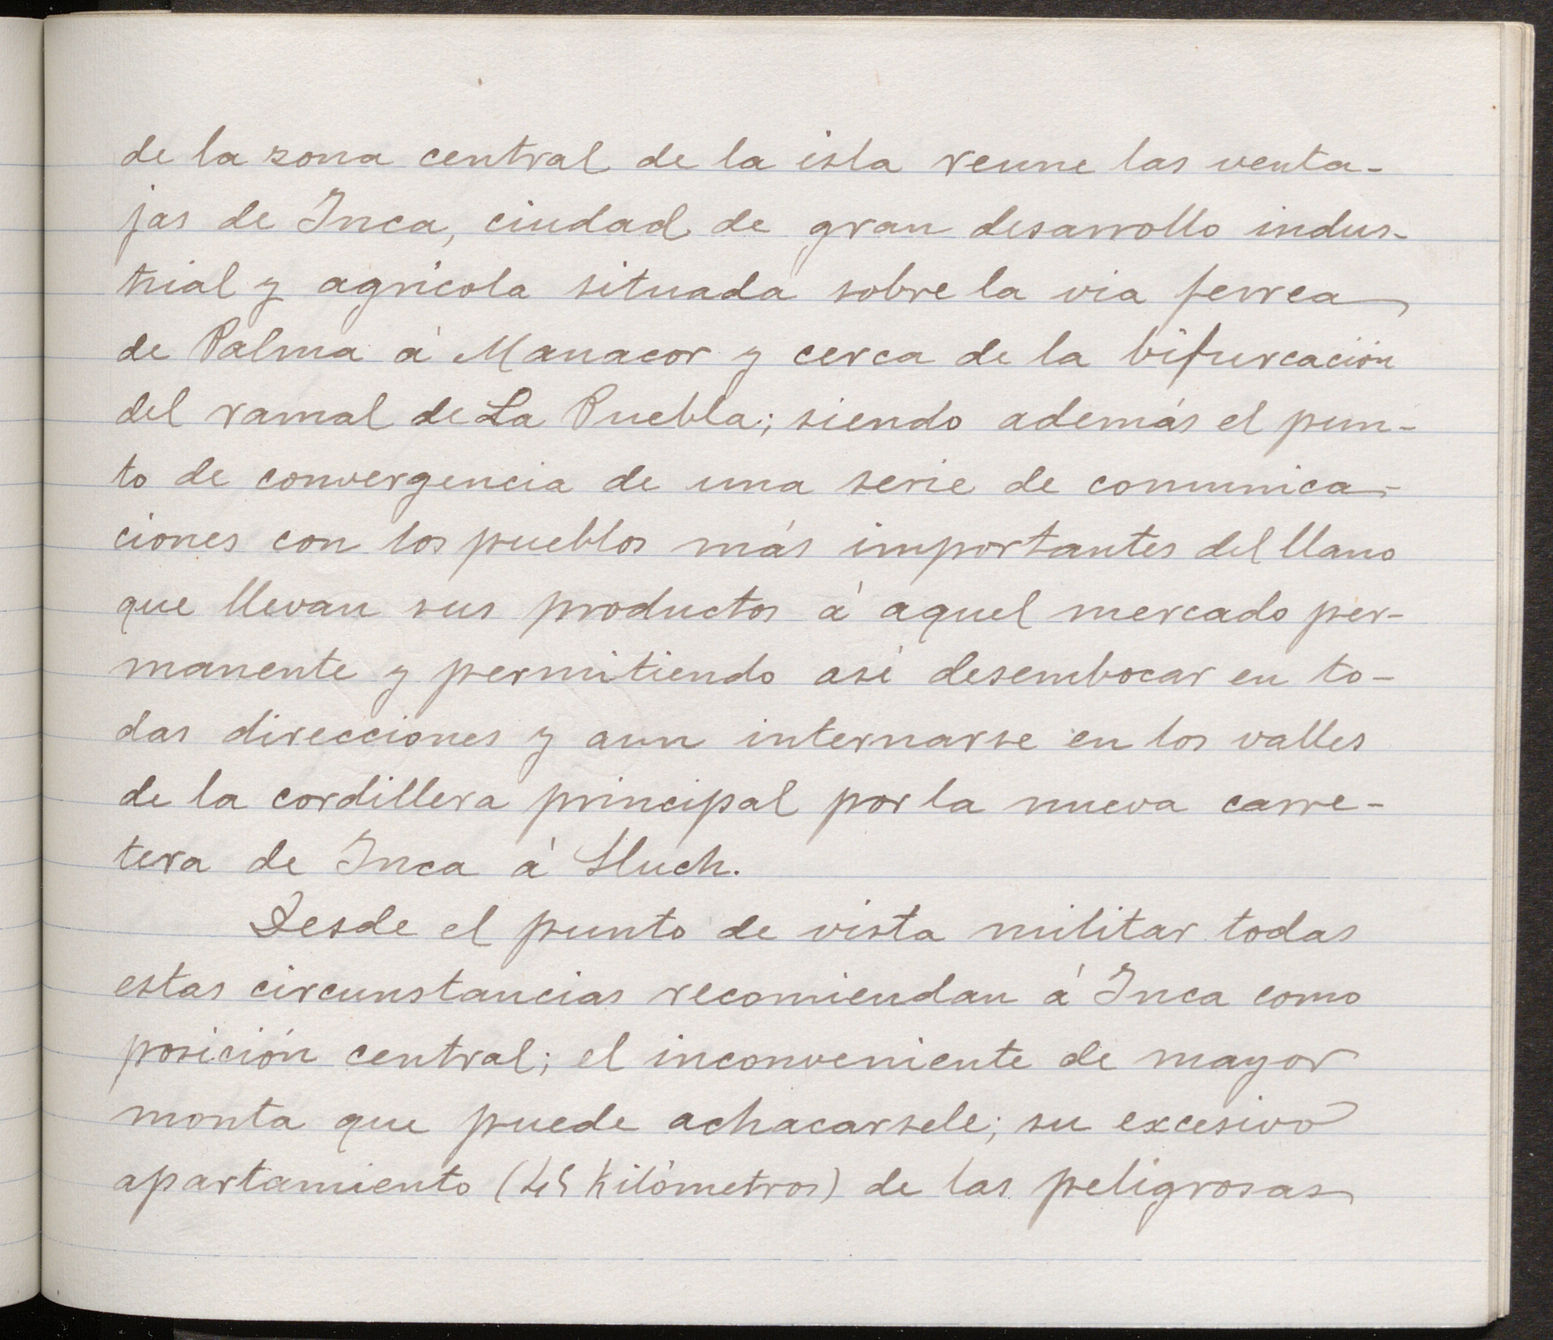 de la zona central de la isla reune las venta-
jas de Inca, ciudad de gran desarrollo indus-
trial y agrícola situada sobre la via ferrea
de Palma á Manacor y cerca de la bifurcación
del ramal de La Puebla; siendo además el pun-
to de convergencia de una serie de comunica-
ciones con los pueblos más importantes del llano
que llevan sus productos á aquel mercado per-
manente y permitiendo así desembocar en to-
das direcciones y aun internarse en los valles
de la cordillera principal por la nueva carre-
tera de Inca á Lluch.
Desde el punto de vista militar todas
estas circunstancias recomiendan á Inca como
posición central; el inconveniente de mayor
monta que puede achacarsele; su excesivo
apartamiento (45 kilómetros) de las peligrosas